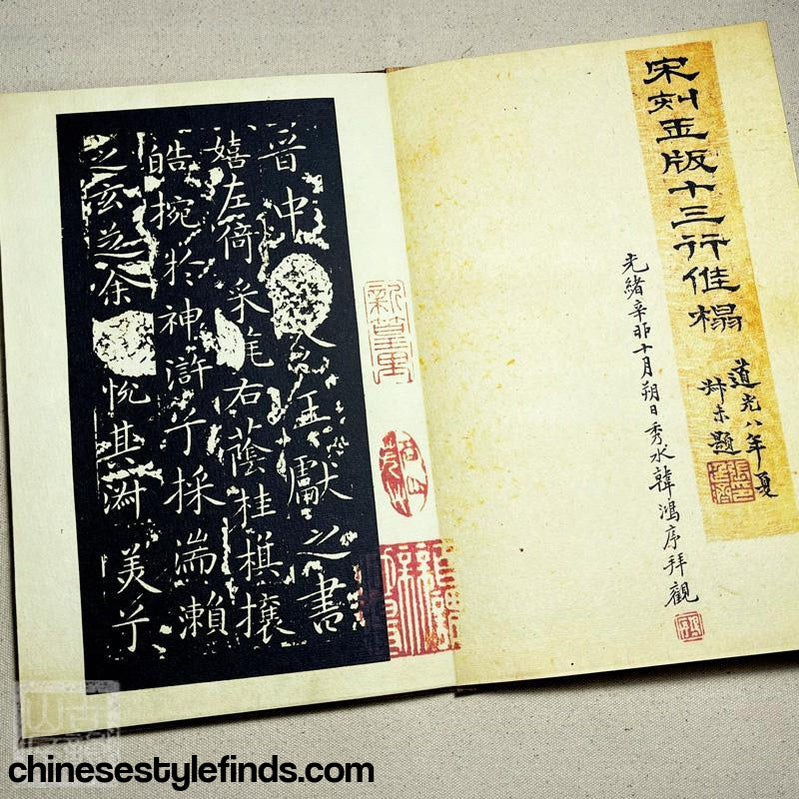 宋刻玉版十三行佳榻
道光八年夏
叔未題
光緒辛卯十月朔日秀水韓鴻序拜觀
晋中令王獻之書
嬉左倚采旄右蔭桂旗攘
皓捥於神滸兮採湍瀬
之玄芝余悅其淑美兮
chinesestylefinds.com